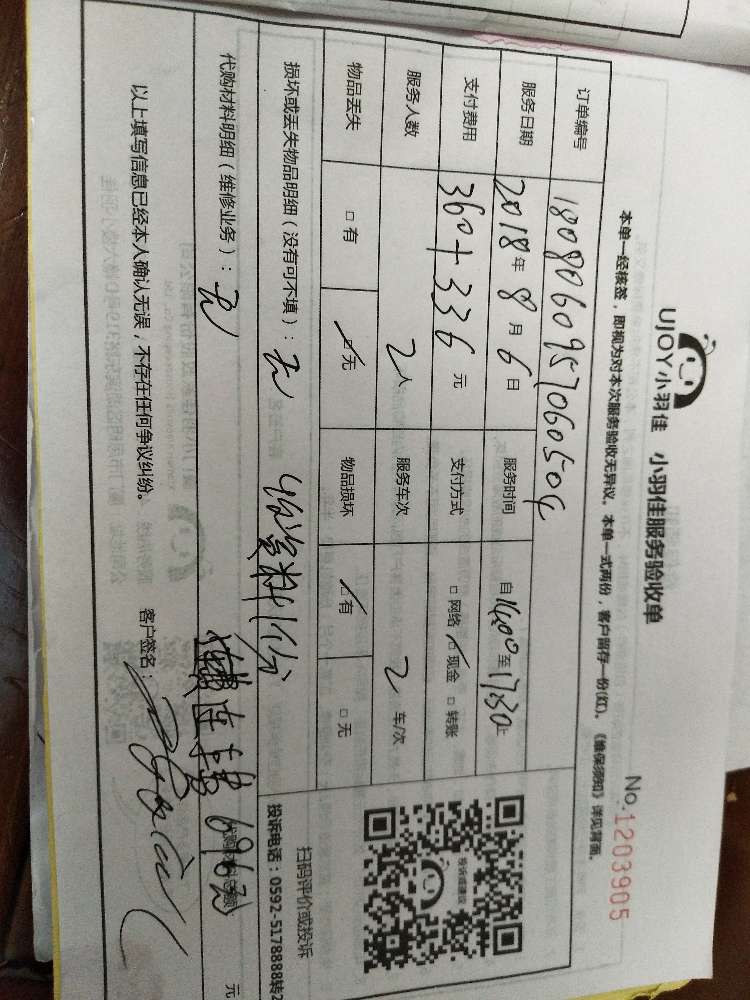 UJOY小羽佳 小羽佳服务验收单
No.1203905
本单一经核签，即视为对本次服务验收无异议。本单一式两份，客户留存一份(红)。《维保须知》详见背面。
订单编号 180806095706050
服务日期 2018年8月6日 服务时间 自14:00至17:30止
支付费用 360+336元 支付方式 □网络 ☑现金 □转账
服务人数 2人 服务车次 2车/次
物品丢失 □有 ☑无 物品损坏 ☑有 □无
扫码评价或投诉
投诉电话：0592-5178888转2
损坏或丢失物品明细（没有可不填）：无
代购材料明细（维修业务）：无 696元 元
以上填写信息已经本人确认无误，不存在任何争议纠纷。 客户签名：